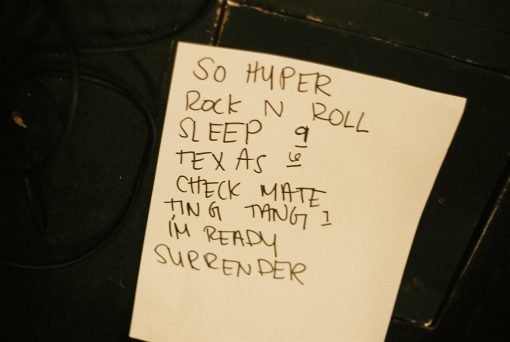 SO HYPER
ROCK N ROLL
SLEEP 9
TEXAS 6
CHECK MATE
TING TANG 1
I'M READY
SURRENDER